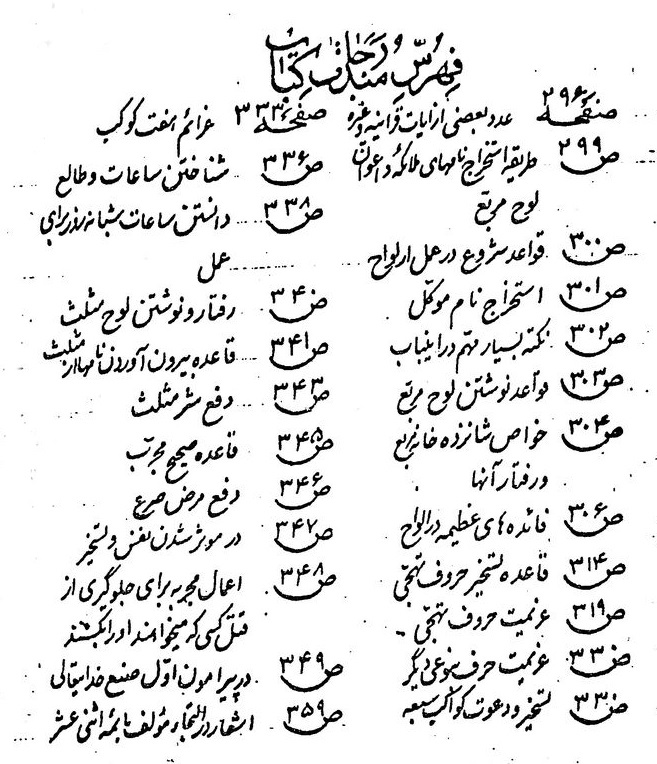 فهرس مندرجات کتاب
صفحه ۲۹۶ عدد بعضی از آیات قرآنیه و غیره
ص ۲۹۹ طریقه استخراج نامهای ملائکه و اعوان
لوح مربع
ص ۳۰۰ قواعد شروع در عمل الواح
ص ۳۰۱ استخراج نام موکل
ص ۳۰۲ نکته بسیار مهم در اینباب
ص ۳۰۳ قواعد نوشتن لوح مربع
ص ۳۰۴ خواص شانزده خانه مربع
و رفتار آنها
ص ۳۰۶ فائده های عظیمه در الواح
ص ۳۱۴ قاعده تسخیر حروف تهجی
ص ۳۱۹ عزیمت حروف تهجی
ص ۳۳۰ عزیمت حرف بنوعی دیگر
ص ۳۳۰ تسخیر و دعوت کواکب سبعه
صفحه ۳۳۳ عزائم هفت کوکب
ص ۳۳۶ شناختن ساعات و طالع
ص ۳۳۸ دانستن ساعات شبانه روز برای
عمل
ص ۳۴۰ رفتار و نوشتن لوح مثلث
ص ۳۴۱ قاعده بیرون آوردن نامها از مثلث
ص ۳۴۳ دفع شر مثلث
ص ۳۴۵ قاعده صحیح مجرب
ص ۳۴۶ دفع مرض صرع
ص ۳۴۷ در موثر شدن نفس و تسخیر
ص ۳۴۸ اعمال مجربه برای جلوگیری از
قتل کسی که میخواهند او را بکشند
ص ۳۴۹ در پیرامون اول صنع خدایتعالی
ص ۳۵۹ اشعار در التجاء مؤلف بائمه اثنی عشر